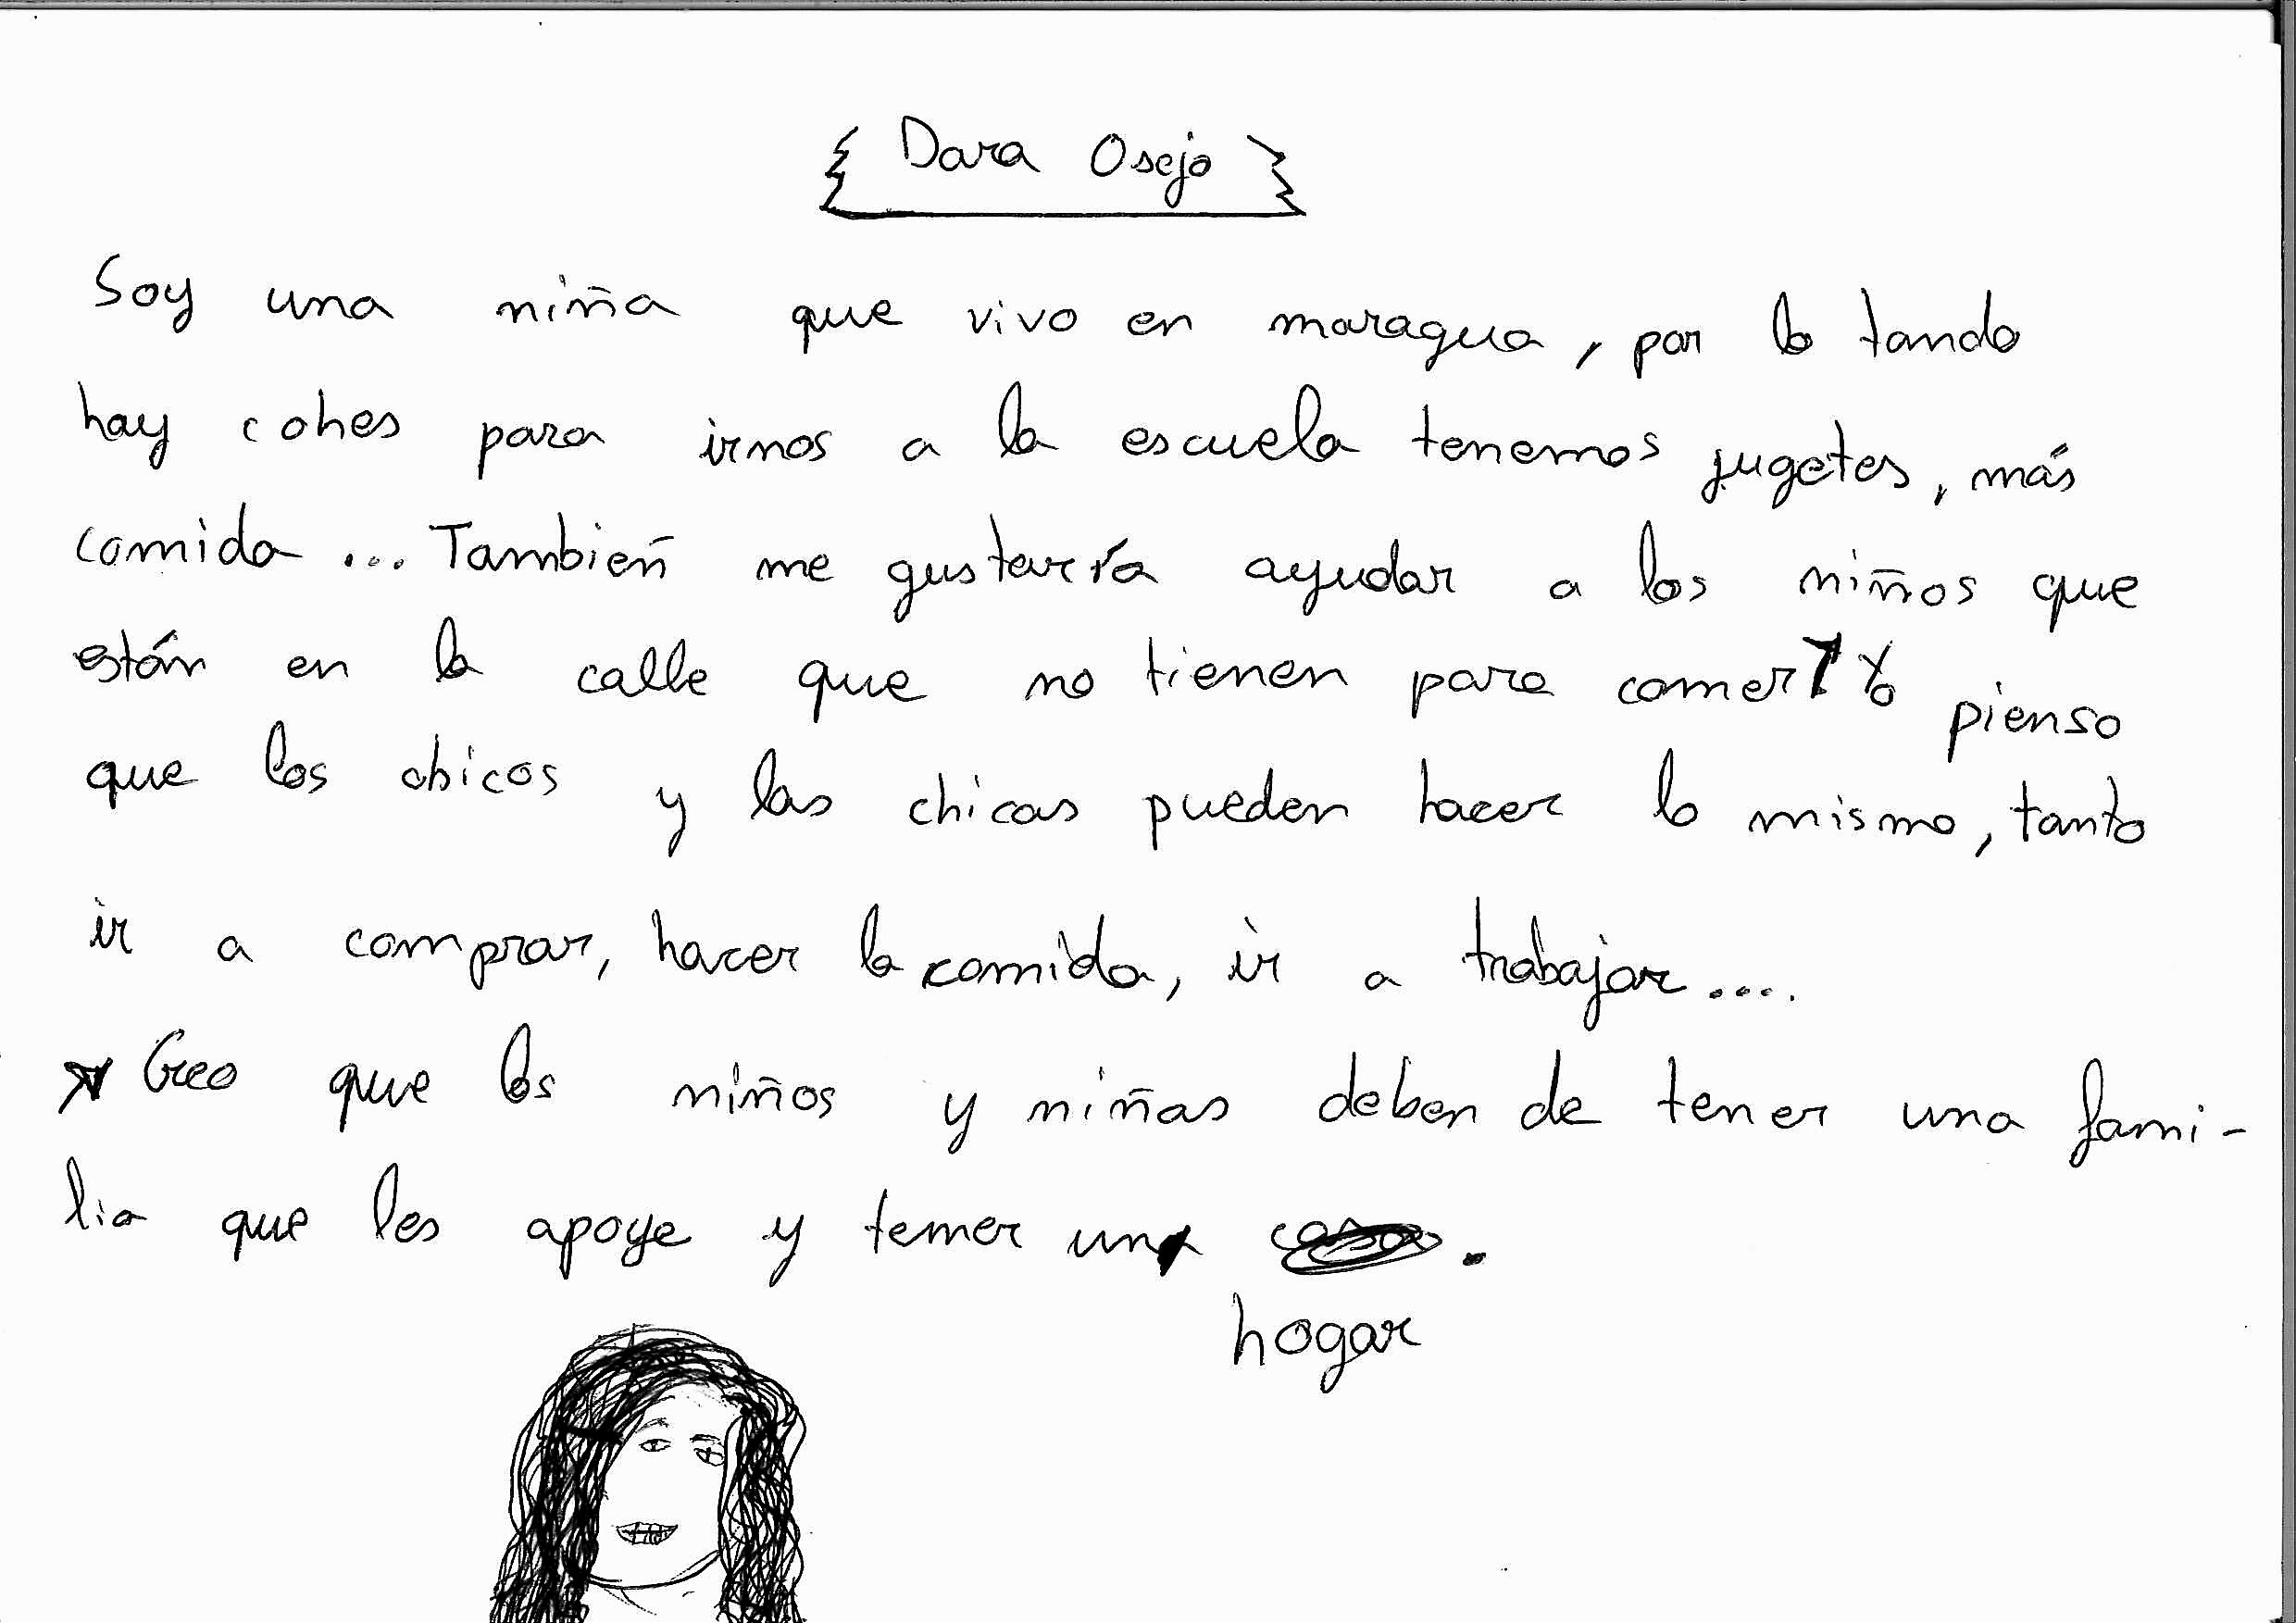 Dara Osejo
Soy una niña que vivo en maragua, por lo tando
hay cohes para irnos a la escuela tenemos jugetes, más
comida ... Tambień me gustaría ayudar a los niños que
están en la calle que no tienen para comer. Yo pienso
que los chicos y las chicas pueden hacer lo mismo, tanto
ir a comprar, hacer la comida, ir a trabajar ....
Creo que los niños y niñas deben de tener una fami-
lia que les apoye y temer un casa.
hogar